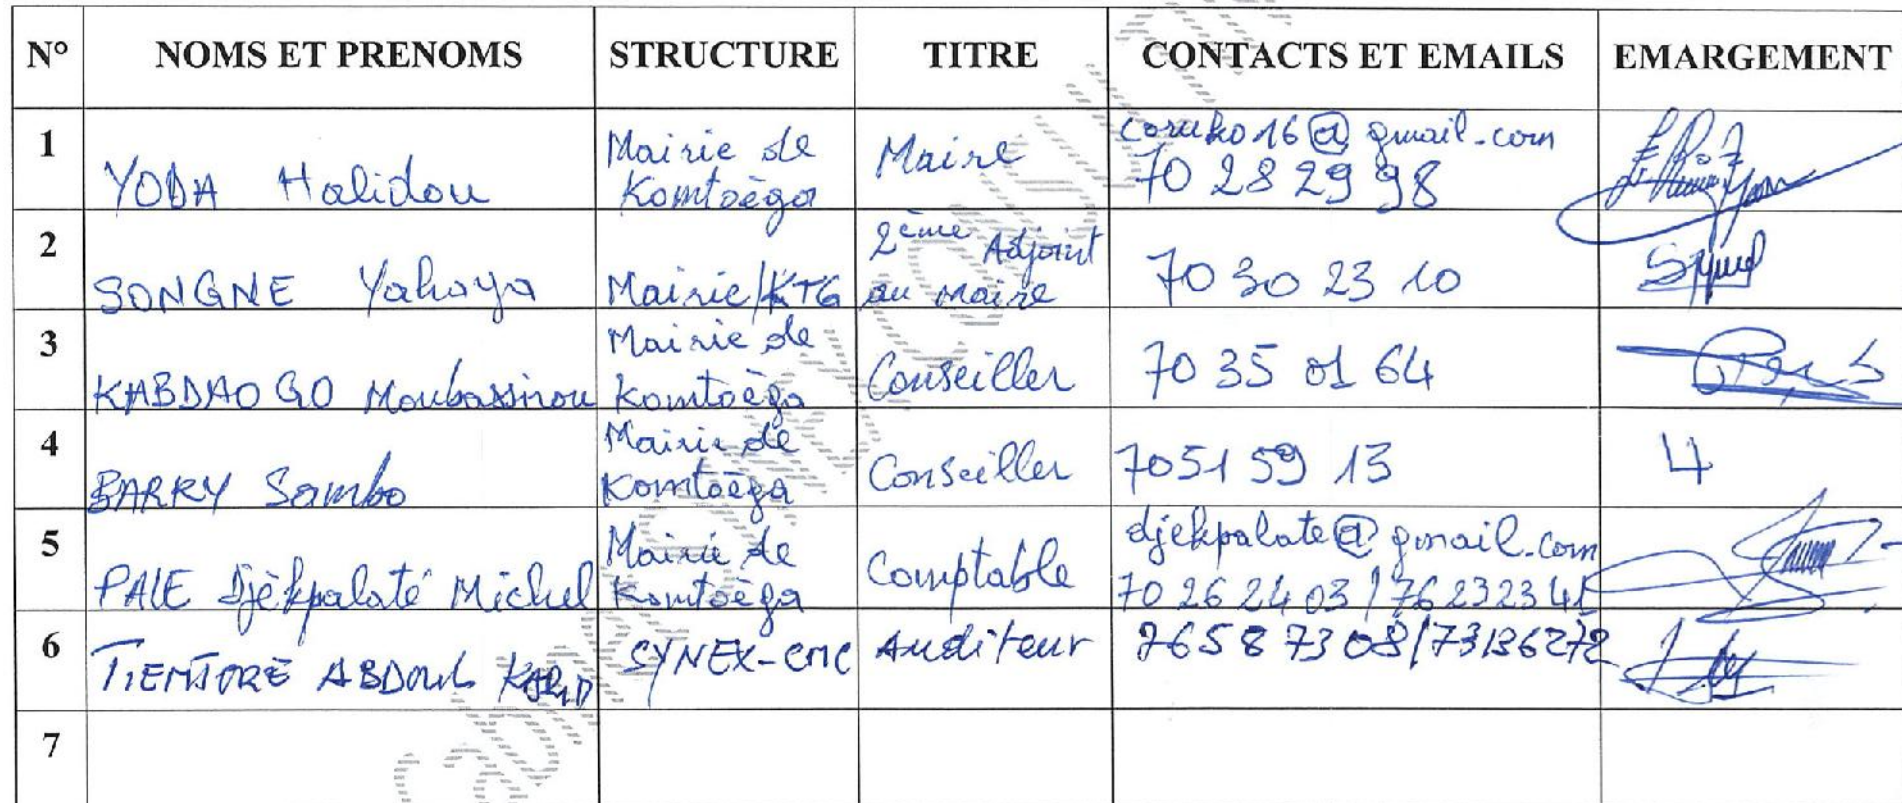 N° NOMS ET PRENOMS STRUCTURE TITRE CONTACTS ET EMAILS EMARGEMENT
1 YODA Halidou Mairie de Komtoèga Maire coruko16@gmail.com 70 28 29 98
2 SONGNE Yahaya Mairie/KTG 2ème Adjoint au maire 70 30 23 10
3 KABDAOGO Moubassirou Mairie de Komtoèga Conseiller 70 35 01 64
4 BARRY Sambo Mairie de Komtoèga Conseiller 70 51 59 13
5 PALE Djèkpalaté Michel Mairie de Komtoèga Comptable djekpalate@gmail.com 70 26 24 03 /
6 TIENTORE ABDOUL SYNEX-CMC Auditeur 76587308/
7